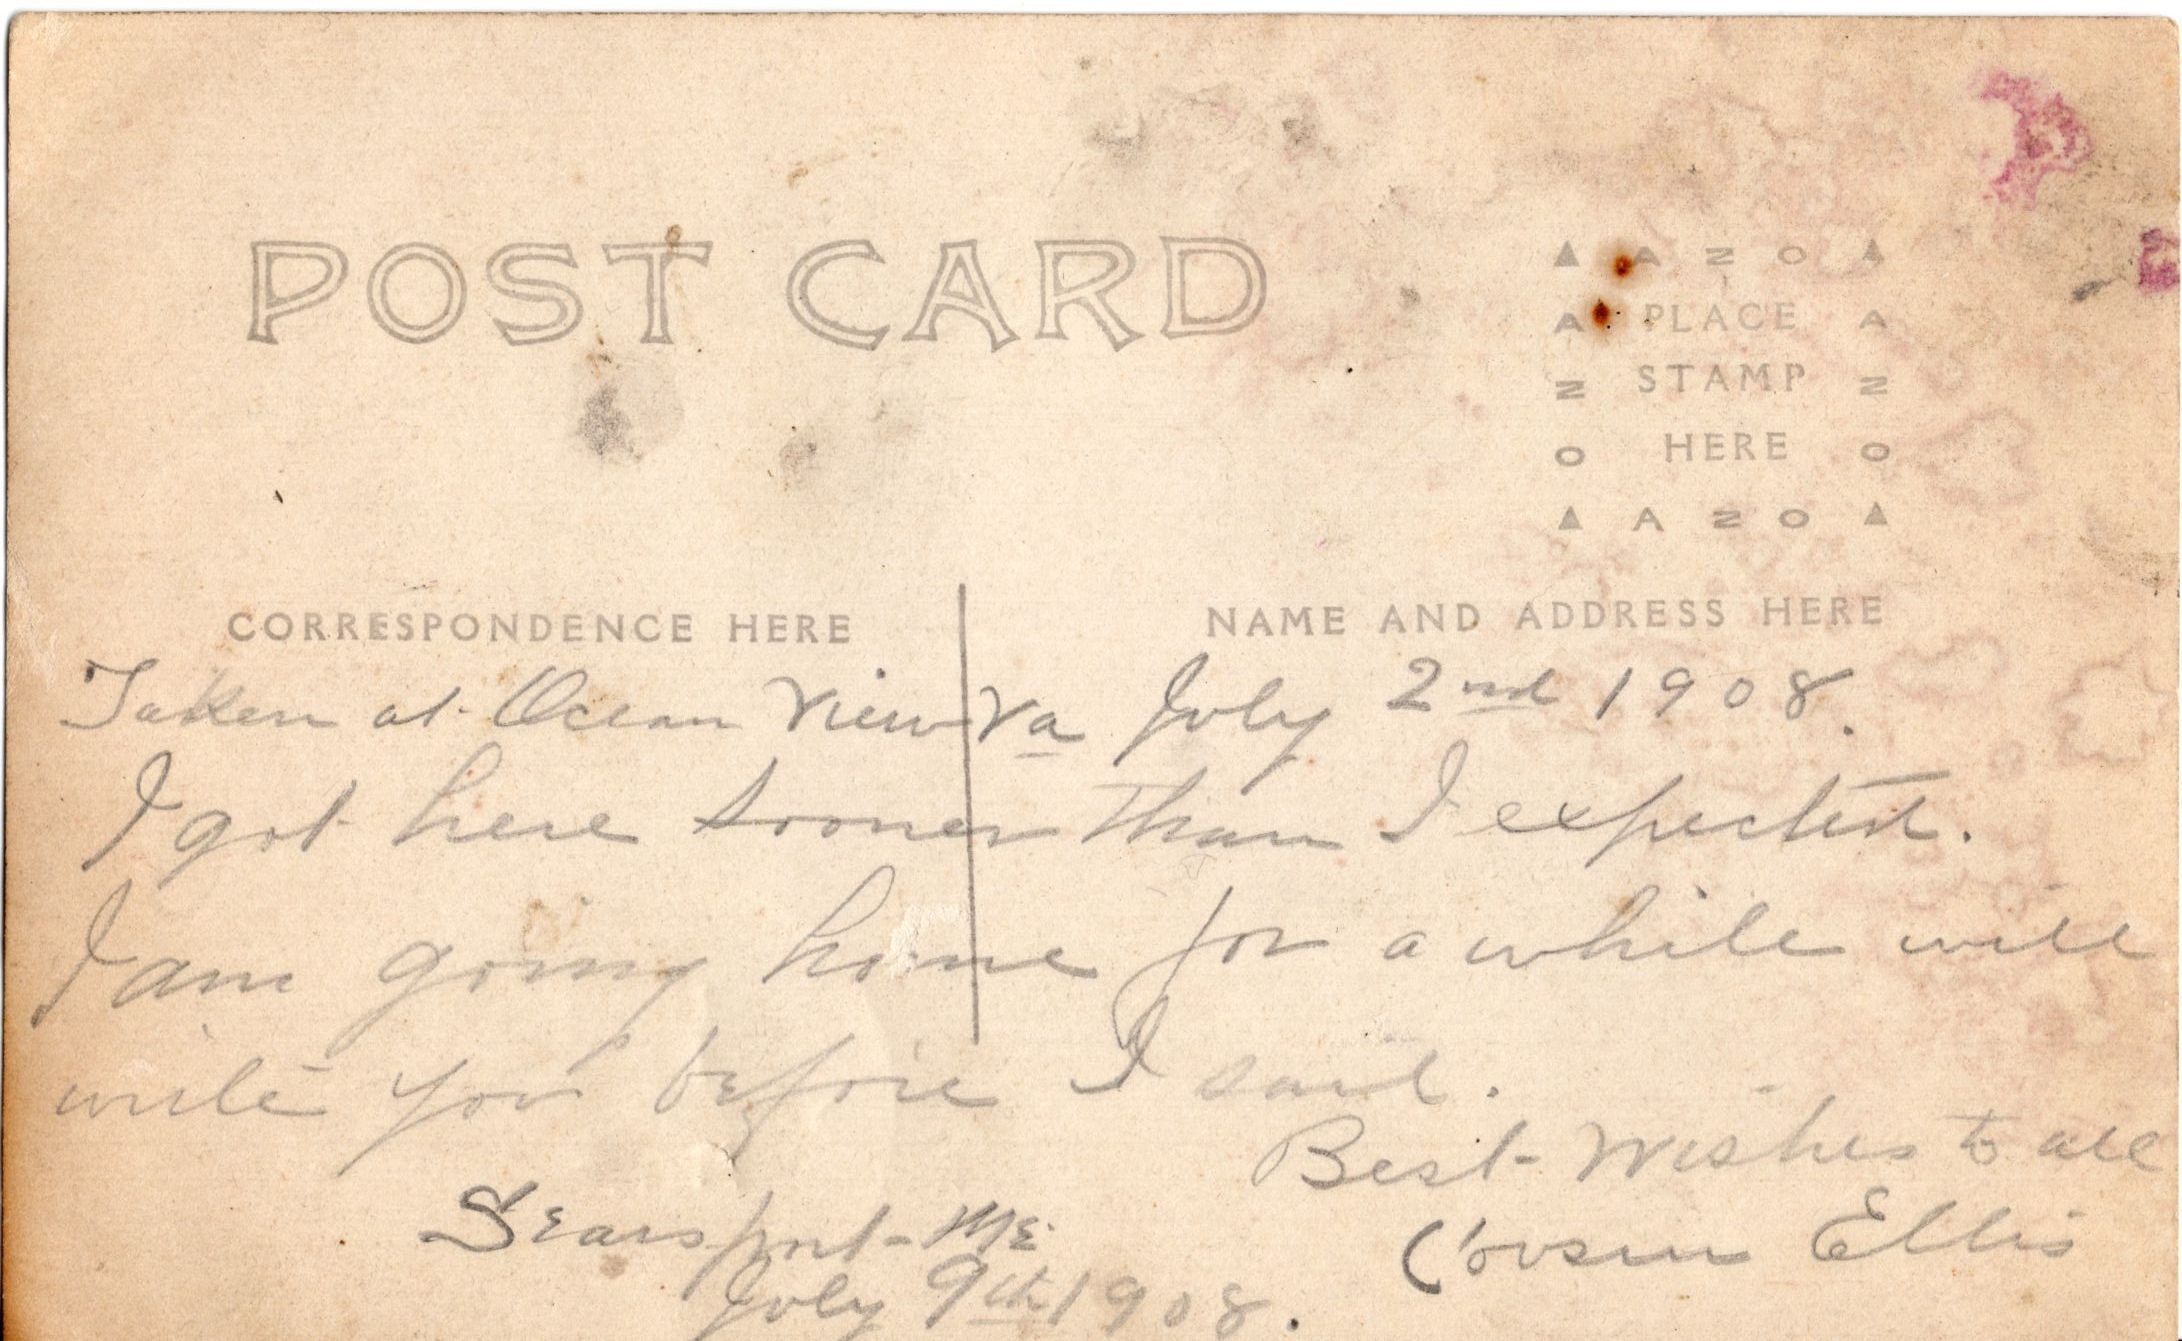 POST CARD
▲ A N O ▲
A PLACE A
N STAMP N
O HERE O
▲ A N O ▲
CORRESPONDENCE HERE
NAME AND ADDRESS HERE
Taken at Ocean View Va July 2nd 1908.
I got here sooner than I expected.
I am going home for a while will
write you before I sail.
Best Wishes to all
Cousin Ellis
Searsport Me
July 9th 1908.